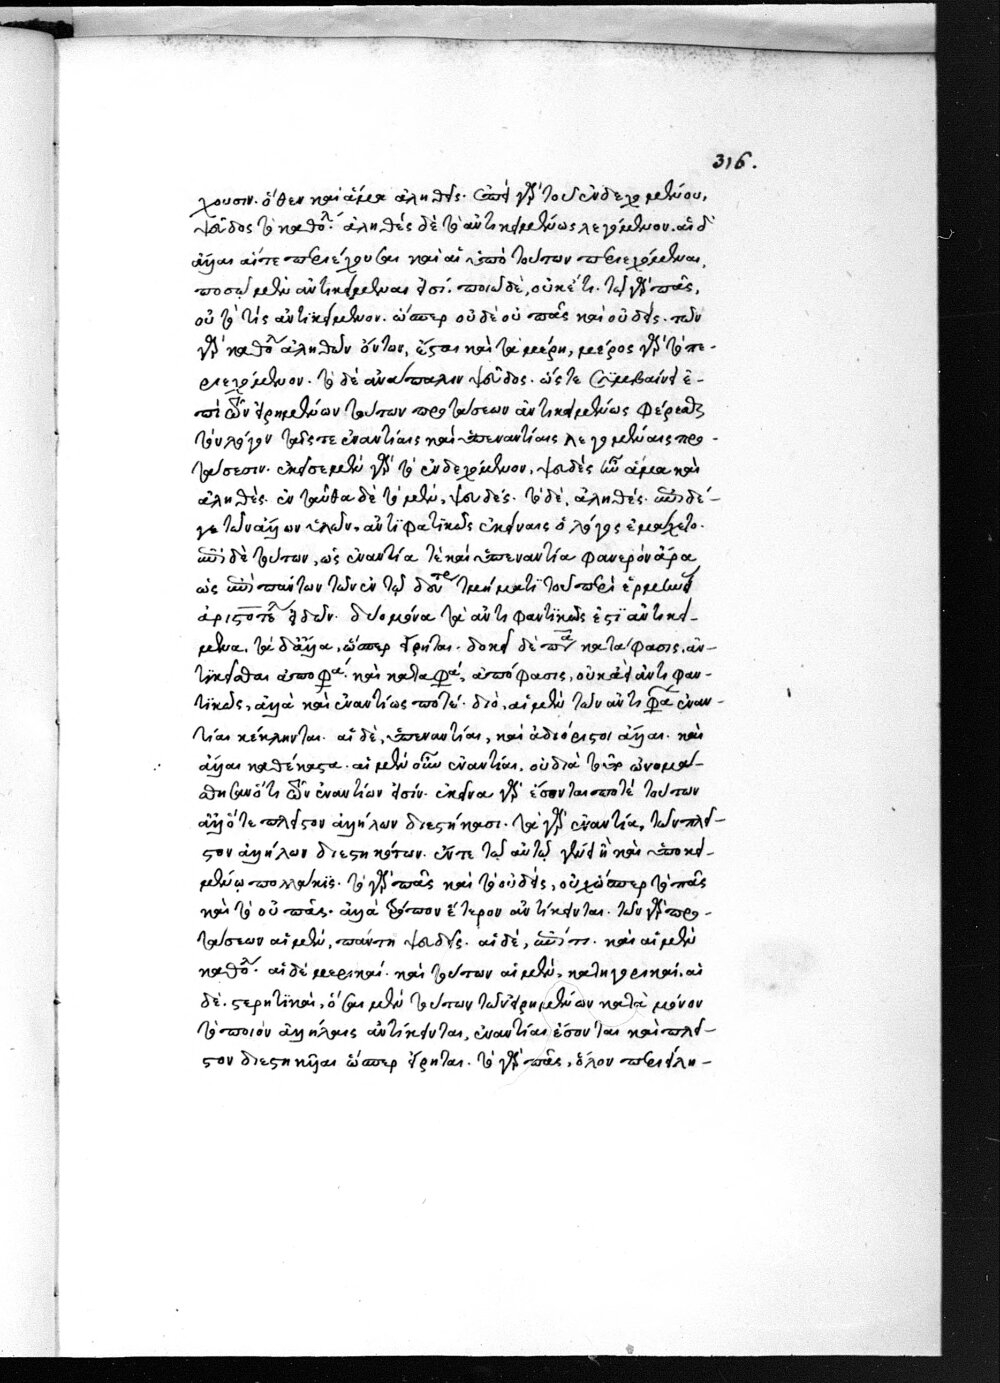 316.
χουσιν. ὅθεν καὶ ἅμα ἀληθεῖς. ἐπεὶ γὰρ τοῦ ἐνδεχομένου,
ψεῦδος τὸ καθόλου. ἀληθὲς δὲ τὸ ἀντικειμένως λεγόμενον. αἱ δ'
ἄλλαι αἵτε περιέχουσαι καὶ αἱ ὑπὸ τούτων περιεχόμεναι,
ποσῷ μὲν ἀντικείμεναι εἰσί. ποιῷ δὲ, οὐκέτι. τῷ γὰρ πᾶς,
οὐ τὸ τίς ἀντικείμενον. ὥσπερ οὐδὲ οὐ πᾶς καὶ οὐδείς. τῶν
γὰρ καθόλου ἀληθῶν ὄντων, ἔσται καὶ τὰ μέρη, μέρος γὰρ τὸ πε-
ριεχόμενον. τὸ δὲ ἀνάπαλιν ψεῦδος. ὥστε συμβαίνει ἐ-
πὶ τῶν εἰρημένων τούτων προτάσεων ἀντικειμένως φέρεσθαι
τὸν λόγον ταῖς τε ἐναντίαις καὶ ὑπεναντίαις λεγομέναις προ-
τάσεσιν. ἐκεῖσε μὲν γὰρ τὸ ἐνδεχόμενον, ψευδὲς ἦν ἅμα καὶ
ἀληθές. ἐνταῦθα δὲ τὸ μὲν, ψευδές. τὸ δὲ, ἀληθές. ἐπὶ δέ-
γε τῶν ἄλλων ὑλῶν, ἀντιφατικῶς ἐκείναις ὁ λόγος ἐμάχετο.
ἐπὶ δὲ τούτων, ὡς ἐναντία τε καὶ ὑπεναντία φανερὸν ἄρα
ὡς ἐπὶ πάντων τῶν ἐν τῷ δευτέρῳ τμήματι τοῦ περὶ ἑρμηνείας
ἀριστοτέλους εἰδῶν. δύο μόνα τὰ ἀντιφαντικῶς ἐστὶ ἀντικεί-
μενα, τὰ δ' ἄλλα, ὥσπερ εἴρηται. δοκεῖ δὲ πᾶσα κατάφασις, ἀν-
τικεῖσθαι ἀποφάσει. καὶ καταφάσει, ἀπόφασις, οὐκ ἀεὶ ἀντιφαν-
τικῶς, ἀλλὰ καὶ ἐναντίως ποτέ. διὸ, αἱ μὲν τῶν ἀντιφάσεων ἐναν-
τίαι κέκληνται. αἱ δὲ, ὑπεναντίαι, καὶ ἀδιόριστοι ἄλλαι. καὶ
ἄλλαι καθέκαστα. αἱ μὲν οὖν ἐναντίαι, οὐ διὰ τοῦτο ὠνομά-
σθησαν ὅτι τῶν ἐναντίων εἰσίν. ἐκεῖνα γὰρ ἔσονται ποτὲ τούτων
ἀλλ' ὅτε πλεῖστον ἀλλήλων διεστήκασι. τὰ γὰρ ἐναντία, τῶν πλεῖ-
στον ἀλλήλων διεστηκότων. ἔν τε τῷ αὐτῷ γένει ἢ καὶ ὑποκει-
μένῳ πολλάκις. τὸ γὰρ πᾶς καὶ τὸ οὐδεὶς, οὐχ ὥσπερ τὸ πᾶς
καὶ τὸ οὐ πᾶς. ἀλλὰ τρόπον ἕτερον ἀντίκεινται. τῶν γὰρ προ-
τάσεων αἱ μὲν, πάντη ψευδεῖς. αἱ δὲ, ἐπί τι. καὶ αἱ μὲν
καθόλου. αἱ δὲ μερικαί. καὶ τούτων αἱ μὲν, κατηγορικαί. αἱ
δὲ, στερητικαὶ, ὅσαι μὲν τούτων τῶν εἰρημένων κατὰ μόνον
τὸ ποιὸν ἀλλήλαις ἀντίκεινται, ἐναντίαι ἔσονται καὶ πλεῖ-
στον διεστηκυῖαι ὥσπερ εἴρηται. τὸ γὰρ πᾶς, ὅλον περιείλη-